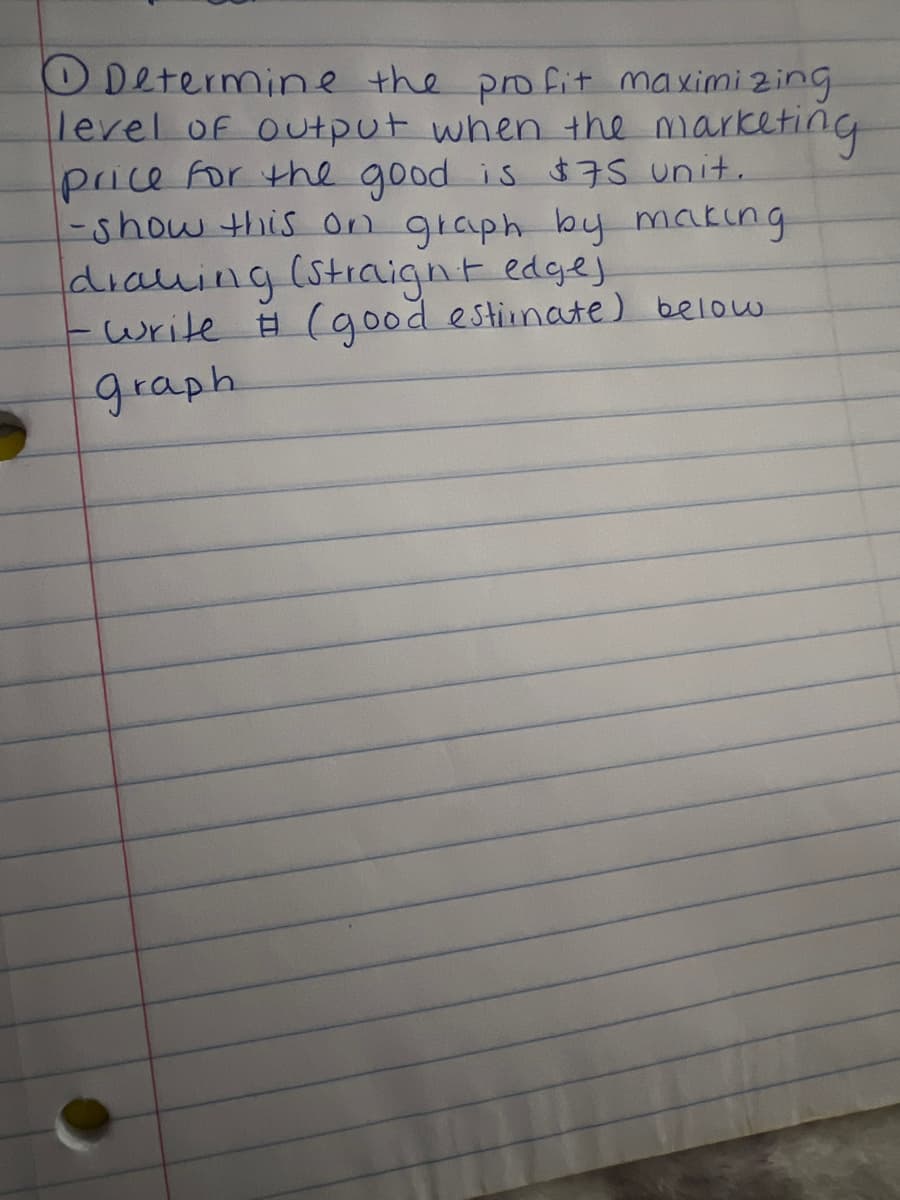 ① Determine the profit maximizing
level of output when the marketing
price for the good is $75 unit.
-show this on graph by making
drawing (straight edge)
-write # (good estimate) below
graph